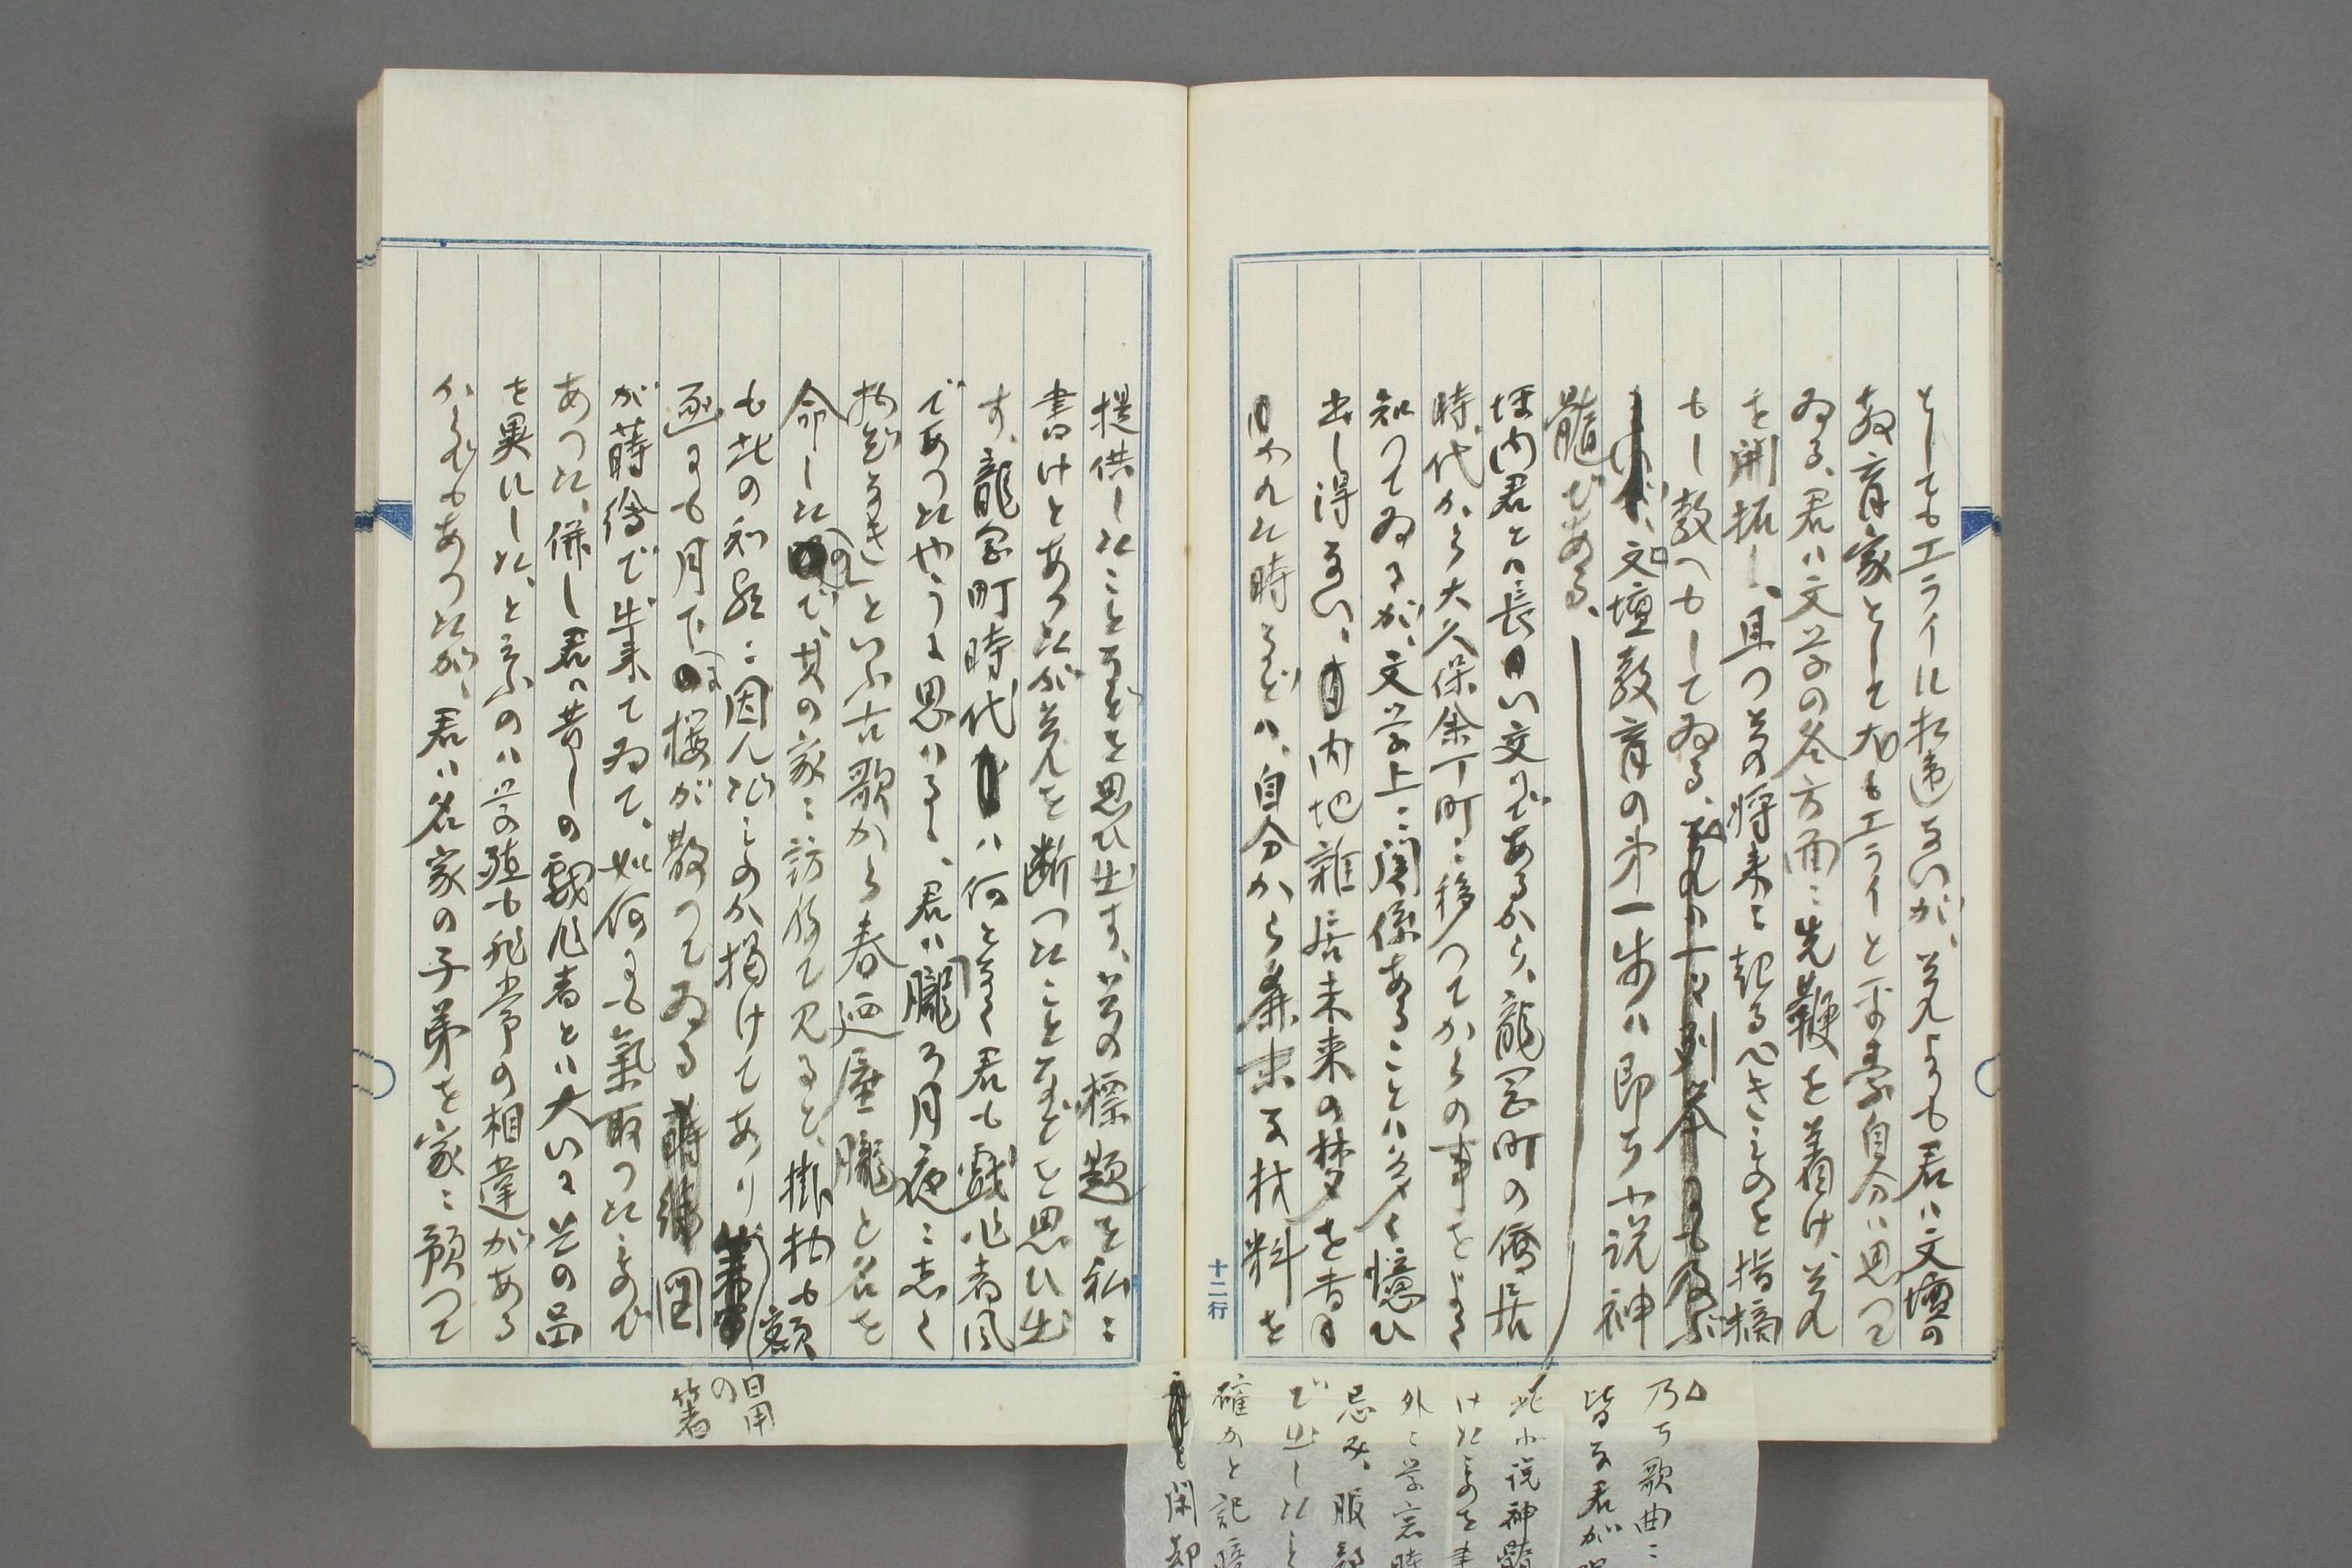 としてもエライに相違ないが、それよりも君ハ文壇の
教育家として尤もエライと平素自分ハ思つて
ゐる、君ハ文学の各方面ニ先鞭を着け、それ
を開拓し、且つその将来に起るべきものを指摘
もし教へもしてゐる、
文壇教育の第一歩ハ即ち小説神
髄である、
坪内君とハ長い交りであるから、龍岡町の僑居
時代から大久保余丁町ニ移つてからの事をよく
知つてゐるが、文学上ニ関係あることハ多く憶ひ
出し得ない、内地雑居未来の夢を書
かれた時などハ、自分から粗末な材料を
十二行
提供したことなどを思ひ出す、その標題を私ニ
書けとあつたがそれを断つたことなどを思ひ出
す、龍岡町時代ハ何となく君も戯作者風
であつたやうに思ハるゝ、君ハ朧ろ月夜ニ志く
物ぞなきといふ古歌から春迺屋朧と名を
命したので、其の家ニ訪ねて見ると、掛物も額
も此の和歌ニ因んだものが掲けてあり
日用
の
箸
函にも月下に桜が散つてゐる図
が蒔絵で出来てゐて、如何にも気取つたもので
あつた、併し君ハ昔しの戯作者とハ大いにその品
を異にした、と云ふのハ学殖も非常の相違がある
からでもあつたが、君ハ名家の子弟を家ニ預つて
乃ち歌曲ニ
皆な君が
此小説神髄
けたものを
外ニ
忌み、服部
で出したこと
確かと記
を閑却